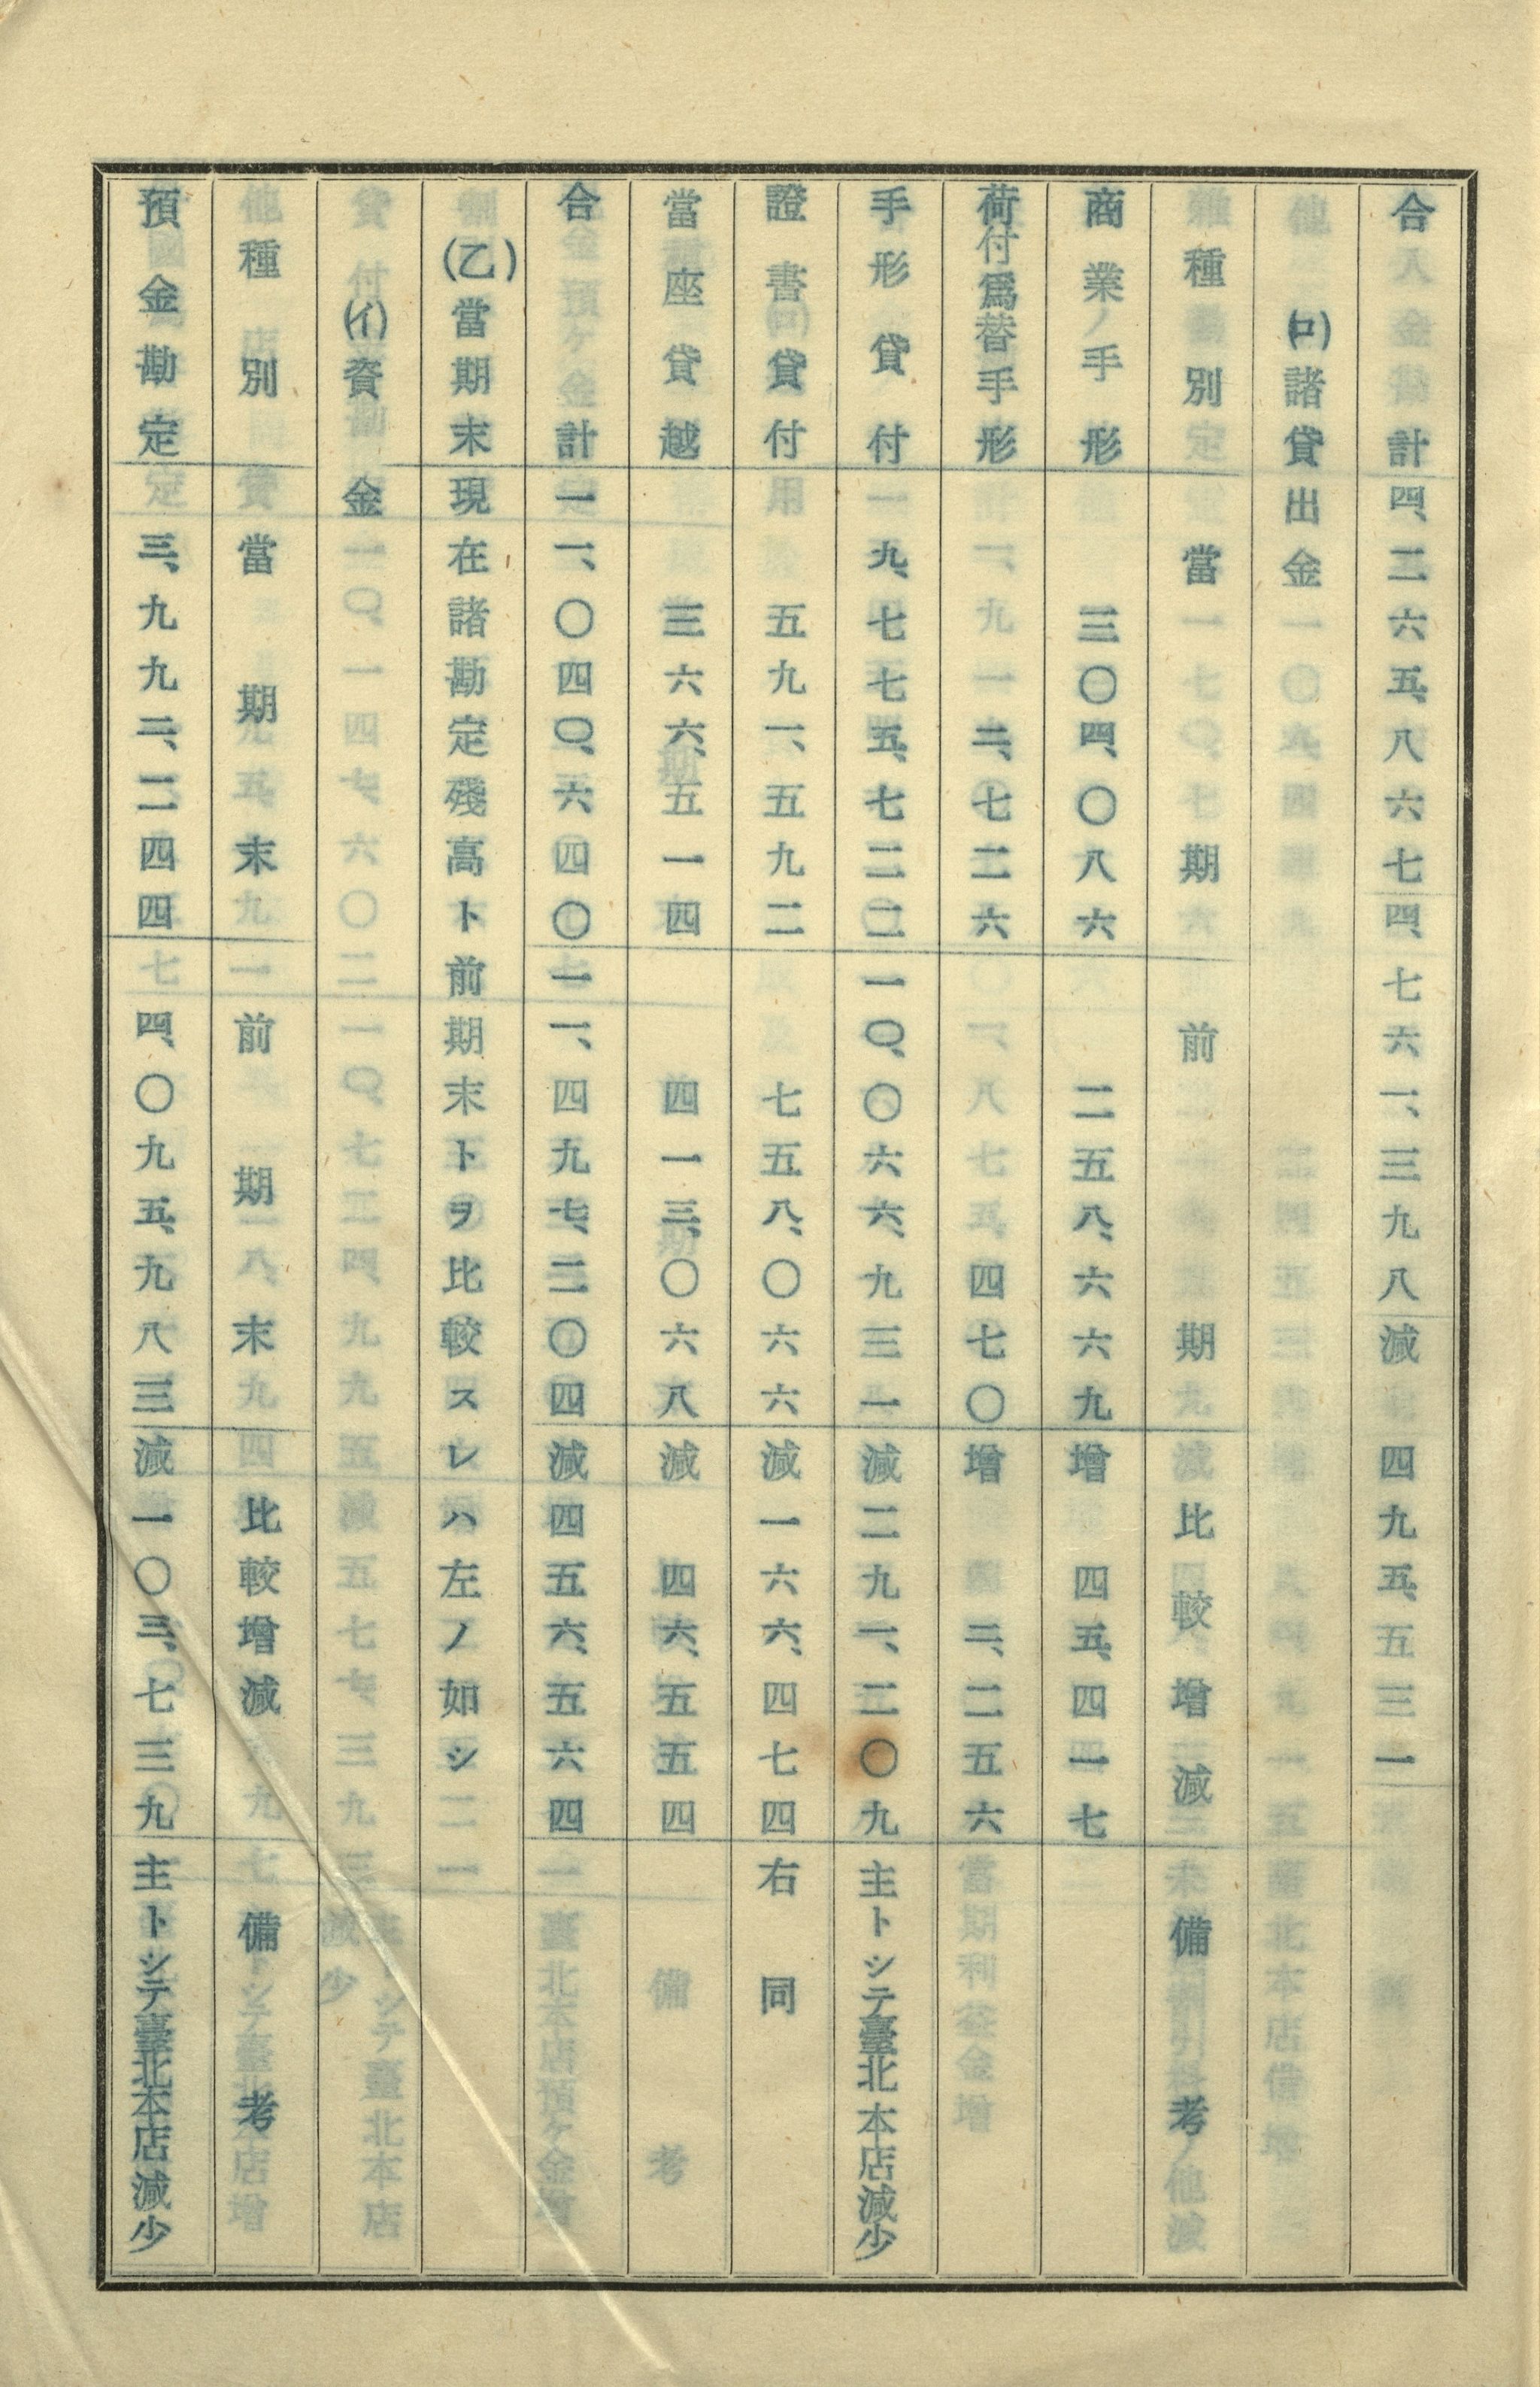 合計 四、二六五、八六七 四、七六一、三九八 減 四九五、五三一
(ロ)諸貸出金
種別 當期 前期 比較增減 備考
商業手形 三〇四、〇八六 二五八、六六九 增 四五、四一七
荷付爲替手形 二、七二六 四七〇 增 二、二五六
手形貸付 九、七七五、七二二 一〇、〇六六、九三一 減 二九一、二〇九 主トシテ臺北本店減少
證書貸付 五九一、五九二 七五八、〇六六 減 一六六、四七四 右同
當座貸越 三六六、五一四 四一三、〇六八 減 四六、五五四
合計 一一、〇四〇、六四〇 一一、四九七、二〇四 減 四五六、五六四
(乙)當期末現在諸勘定殘高ト前期末トヲ比較スレハ左ノ如シ
(イ)資金
種別 當期末 前期末 比較增減 備考
預金勘定 三、九九二、二四四 四、〇九五、九八三 減 一〇三、七三九 主トシテ臺北本店減少